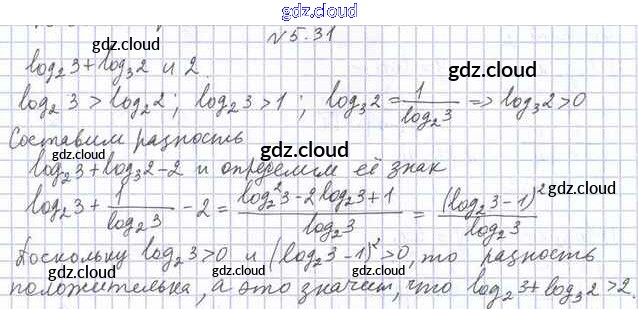 gdz.cloud
№5.31
gdz.cloud
log₂3 + log₃2 и 2.
gdz.cloud
log₂3 > log₂2; log₂3 > 1; log₃2 = 1/log₂3 => log₃2 > 0
gdz.cloud
Составим разность
gdz.cloud
gdz.cloud
log₂3 + log₃2 - 2 и определим её знак
log₂3 + 1/log₂3 - 2 = (log₂²3 - 2log₂3 + 1)/log₂3 = (log₂3 - 1)²/log₂3
gdz.cloud
gdz.cloud
gdz.cloud
Поскольку log₂3 > 0 и (log₂3 - 1)² > 0, то разность
gdz.cloud
gdz.cloud
положительна, а это значит, что log₂3 + log₃2 > 2.